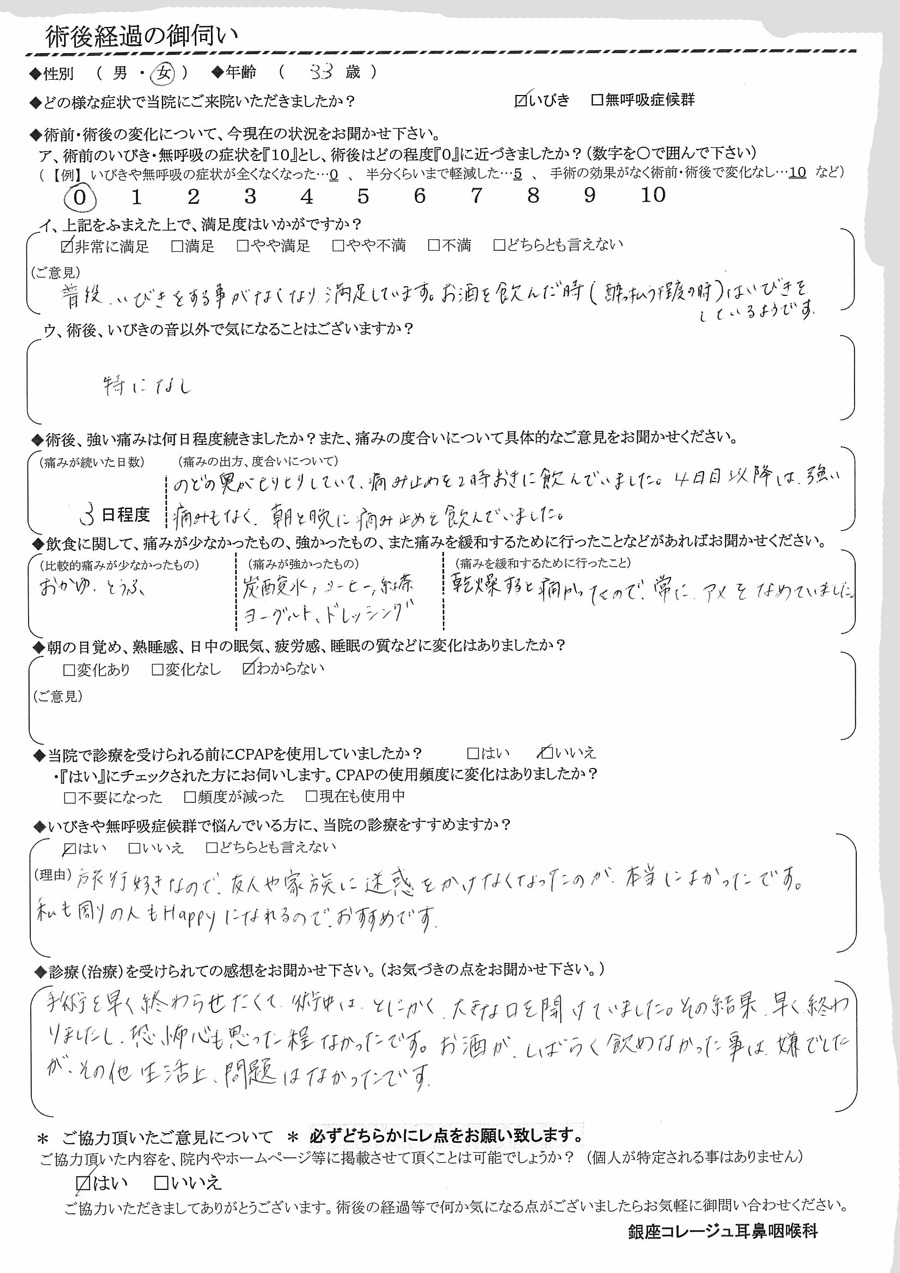 術後経過の御伺い
◆性別 ( 男 ・ 女 ) ◆年齢 ( 33 歳 )
◆どの様な症状で当院にご来院いただきましたか? ☑いびき □無呼吸症候群
◆術前・術後の変化について、今現在の状況をお聞かせ下さい。
ア、術前のいびき・無呼吸の症状を『10』とし、術後はどの程度『0』に近づきましたか?(数字を〇で囲んで下さい)
(【例】いびきや無呼吸の症状が全くなくなった…0 、 半分くらいまで軽減した…5 、 手術の効果がなく術前・術後で変化なし…10 など)
0 1 2 3 4 5 6 7 8 9 10
イ、上記をふまえた上で、満足度はいかがですか?
☑非常に満足 □満足 □やや満足 □やや不満 □不満 □どちらとも言えない
(ご意見)
普段、いびきをする事がなくなり満足しています。お酒を飲んだ時(酔っ払う程度の時)はいびきを
しているようです。
ウ、術後、いびきの音以外で気になることはございますか?
特になし
◆術後、強い痛みは何日程度続きましたか?また、痛みの度合いについて具体的なご意見をお聞かせください。
(痛みが続いた日数) (痛みの出方、度合いについて)
のどの奥がヒリヒリしていて、痛み止めを2時おきに飲んでいました。4日目以降は、強い
3 日程度 痛みもなく、朝と晩に痛み止めを飲んでいました。
◆飲食に関して、痛みが少なかったもの、強かったもの、また痛みを緩和するために行ったことなどがあればお聞かせください。
(比較的痛みが少なかったもの) (痛みが強かったもの) (痛みを緩和するために行ったこと)
おかゆ、とうふ 炭酸水、コーヒー、紅茶 乾燥すると痛かったので、常に、アメをなめていました。
ヨーグルト、ドレッシング
◆朝の目覚め、熟睡感、日中の眠気、疲労感、睡眠の質などに変化はありましたか?
□変化あり □変化なし ☑わからない
(ご意見)
◆当院で診療を受けられる前にCPAPを使用していましたか? □はい ☑いいえ
・『はい』にチェックされた方にお伺いします。CPAPの使用頻度に変化はありましたか?
□不要になった □頻度が減った □現在も使用中
◆いびきや無呼吸症候群で悩んでいる方に、当院の診療をすすめますか?
☑はい □いいえ □どちらとも言えない
(理由) 旅行好きなので、友人や家族に迷惑をかけなくなったのが、本当によかったです。
私も周りの人もHappyになれるので、おすすめです。
◆診療(治療)を受けられての感想をお聞かせ下さい。(お気づきの点をお聞かせ下さい。)
手術を早く終わらせたくて、術中は、とにかく、大きな口を開けていました。その結果、早く終わ
りましたし、恐怖心も思った程なかったです。お酒が、しばらく飲めなかった事は、嫌でした
が、その他生活上、問題はなかったです。
* ご協力頂いたご意見について * 必ずどちらかにレ点をお願い致します。
ご協力頂いた内容を、院内やホームページ等に掲載させて頂くことは可能でしょうか? (個人が特定される事はありません)
☑はい □いいえ
ご協力いただきましてありがとうございます。術後の経過等で何か気になる点がございましたらお気軽に御問い合わせください。
銀座コレージュ耳鼻咽喉科